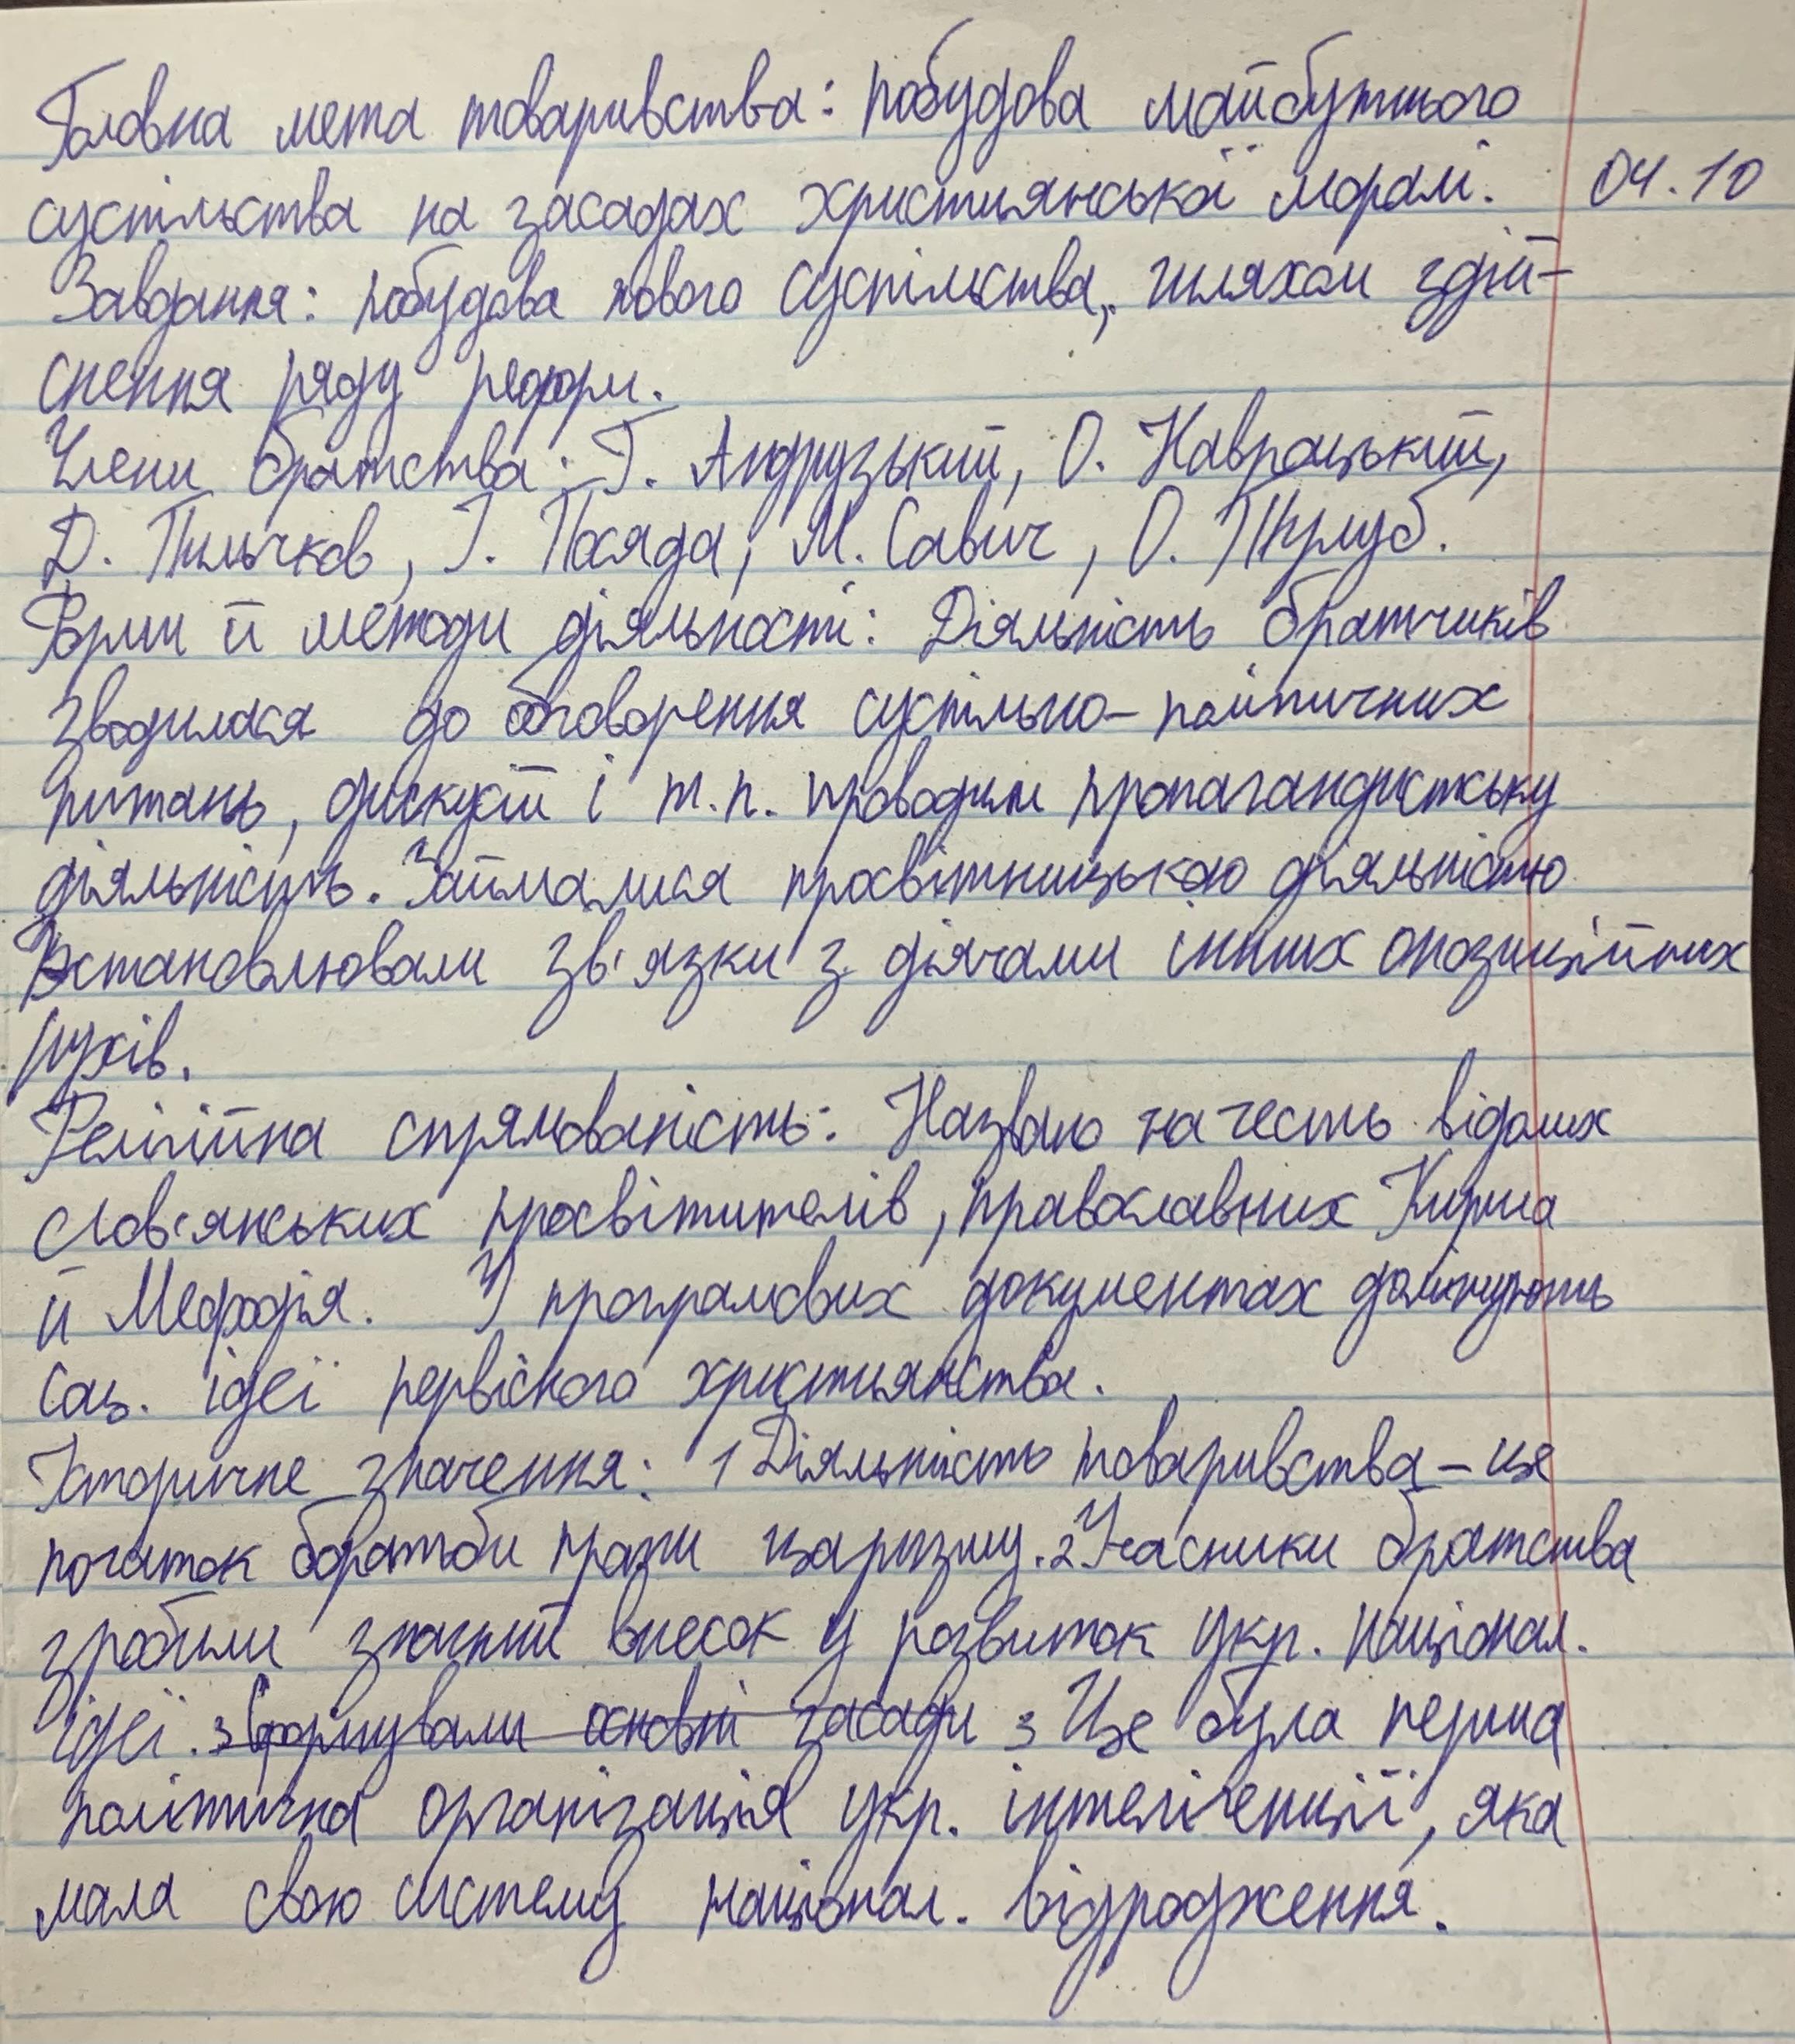 Головна мета товариства: побудова майбутнього
суспільства на засадах християнської моралі.
04.10
Завдання: побудова нового суспільства, шляхом здій-
снення ряду реформ.
Члени братства: Г. Андрузький, О. Навроцький,
Д. Пильчков, І. Посяда, М. Савич, О. Тулуб.
Форми й методи діяльності: Діяльність братчиків
зводилася до обговорення суспільно-політичних
питань, дискусій і т.п. проводили пропагандистську
діяльність. Займалися просвітницькою діяльністю
Встановлювали зв'язки з діячами інших опозиційних
рухів.
Релігійна спрямованість: Названо на честь відомих
слов'янських просвітителів, православних Кирила
й Мефодія. У програмових документах домінують
соц. ідеї первісного християнства.
Історичне значення: 1 Діяльність товариства - це
початок боротьби проти царизму. 2 Учасники братства
зробили значний внесок у розвиток укр. націонал.
ідеї. 3 Сформували основні засади 3 Це була перша
політична організація укр. інтелігенції, яка
мала свою систему націонал. відродження.